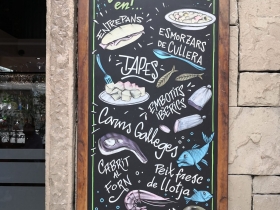 en!
ENTREPANS
ESMORZARS
DE
CULLERA
TAPES
EMBOTITS
IBERICS
Carns Gallegues
CABRIT
AL
FORN
Peix fresc
de llotja